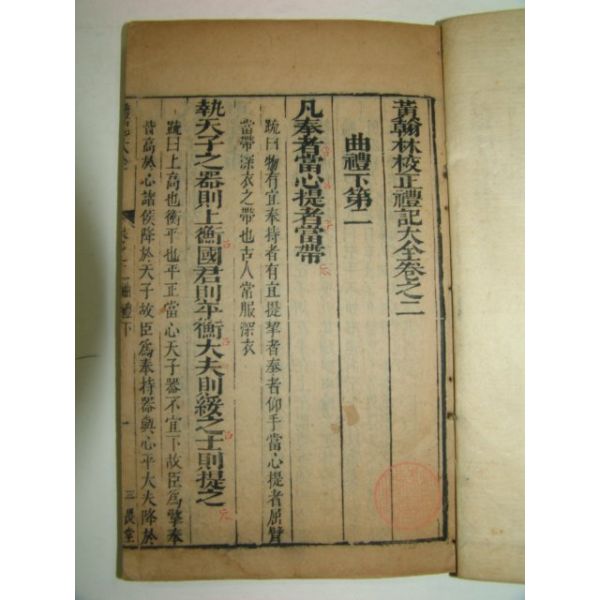 黃翰林校正禮記大全卷之二
曲禮下第二
凡奉者當心提者當帶
疏曰物有宜奉持者有宜提挈者奉者仰手當心提者屈臂
當帶深衣之帶也古人常服深衣
執天子之器則上衡國君則平衡大夫則綏之士則提之
疏曰上高也衡平也平正當心天子器不宜下故臣爲擎奉
皆高於心諸侯降於天子故臣爲奉持器與心平大夫降於
卷之二曲禮下 一